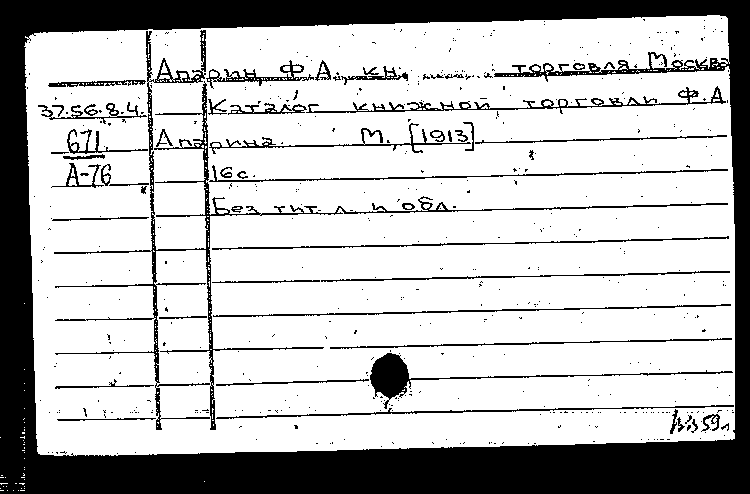 Апарин, Ф.А., кн. торговля. Москва
37.56.8.4. Каталог книжной торговли Ф.А
671 Апарина. М., [1913]
А-76 16с.
Без тит. л. и обл.
59г.